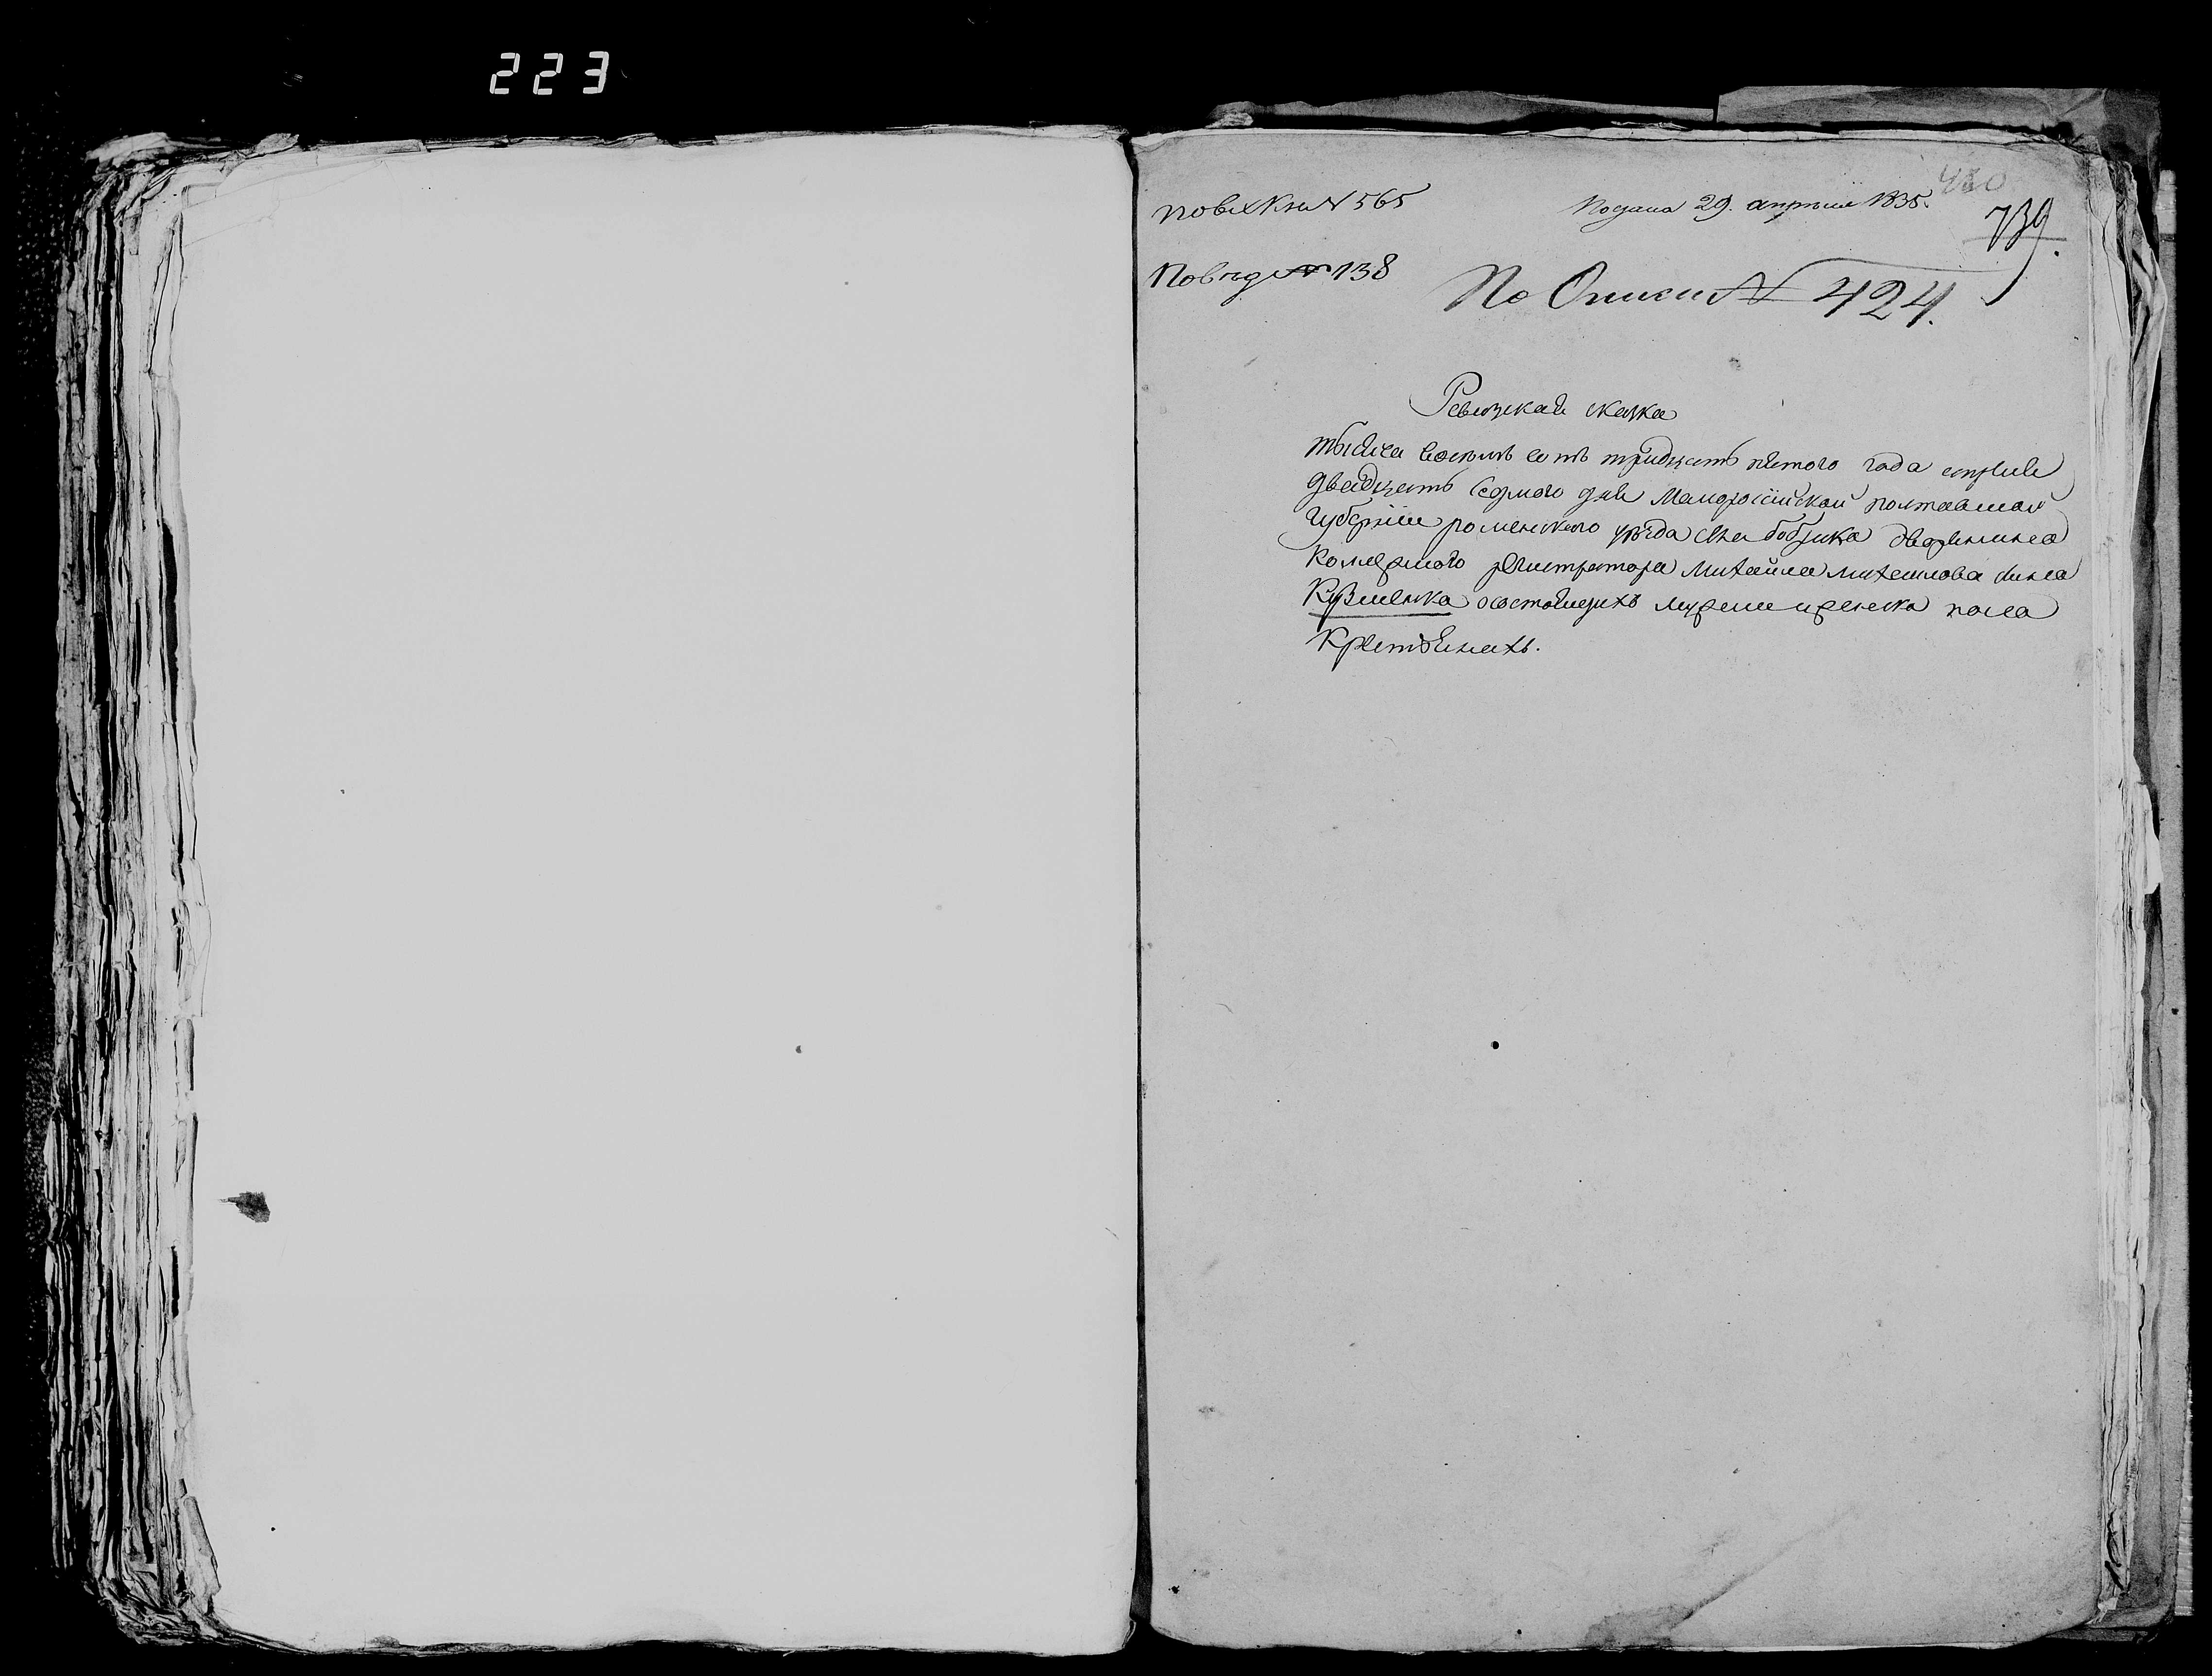 223
480
по вх Кн № 565
Подана 29. апрѣля 1835.
739.
По вѣд № 138
По Описи № 424.
Ревизская сказка
тысяча восемь сотъ тридцать пятого года апрѣля
двадцать седмого дня Малоросійской полтавской
губерніи роменского уезда села бобрика дворянина
колежского регистратора михайла михайлова сина
Кузменка осостоящихъ мужеска иженска пола
Крестянахъ.